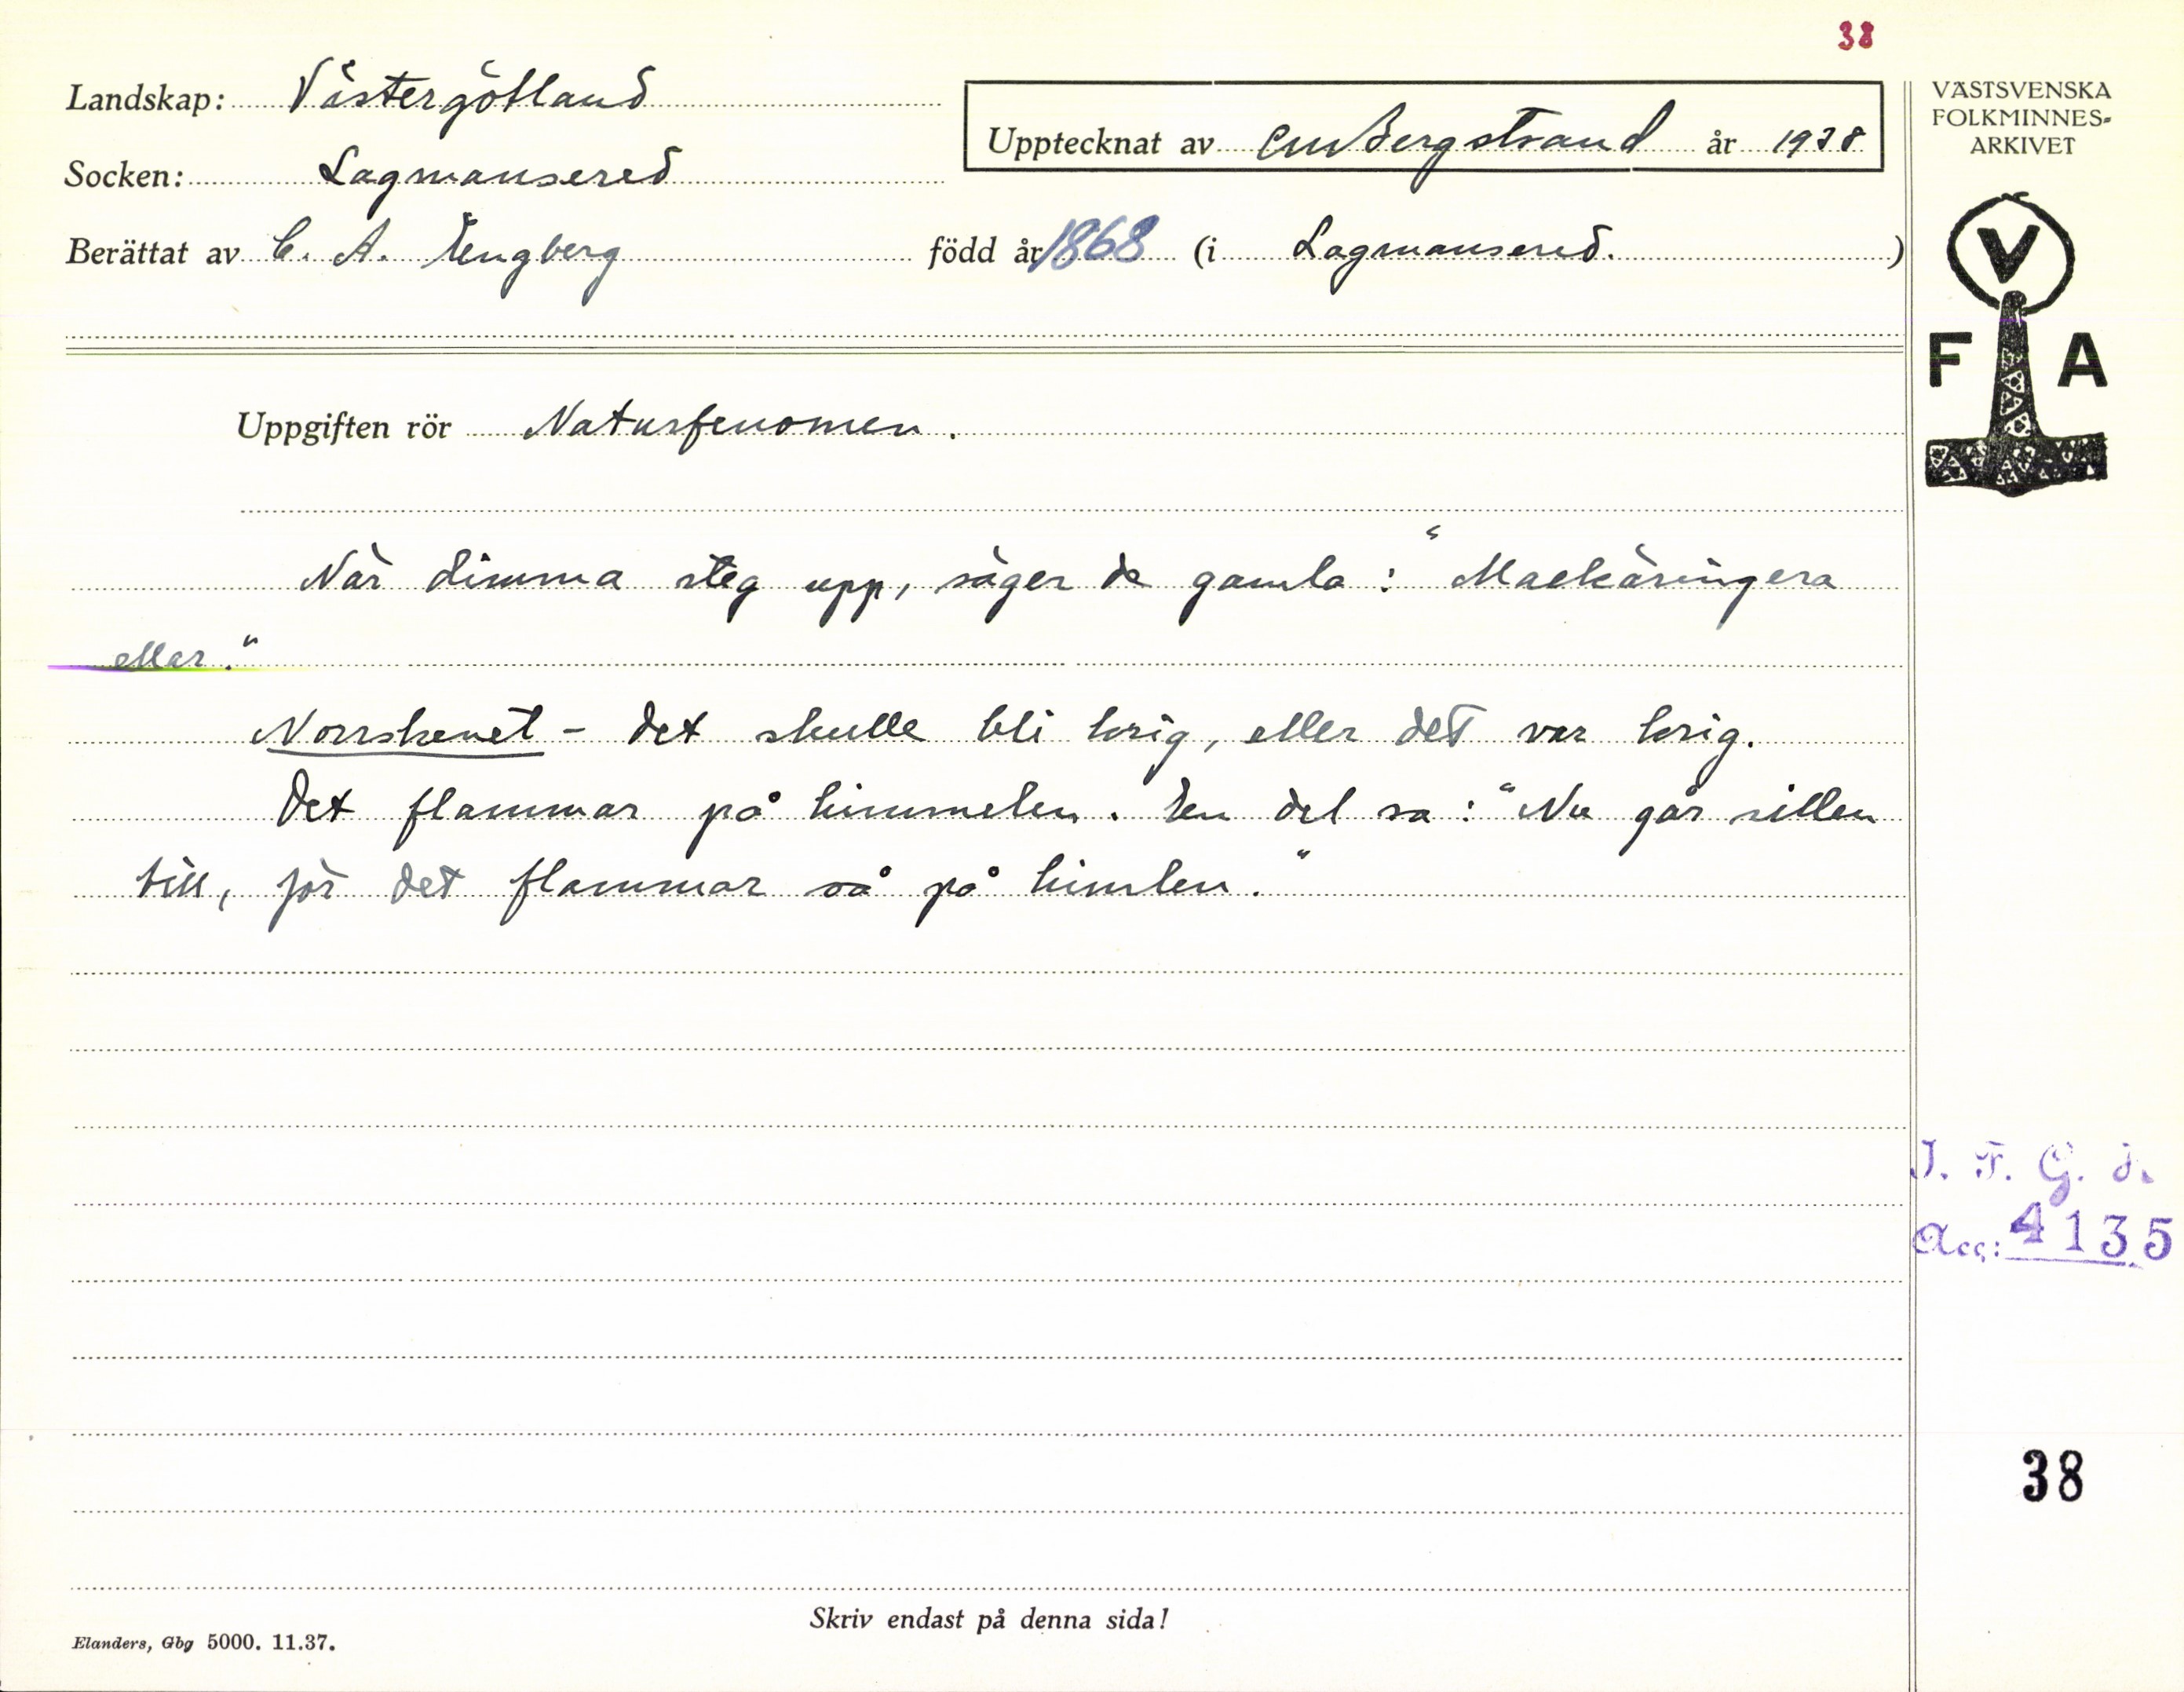 38
Landskap: Västergötland
Socken: Lagmansered
Upptecknat av CMBergstrand år 1938
VÄSTSVENSKA
FOLKMINNES-
ARKIVET
Berättat av C. A. Engberg född år 1868 (i Lagmansered.)
V
F A
Uppgiften rör Naturfenomen.
När dimma steg upp, säger de gamla: "Maekäringera
ellar."
Norrskenet - det skulle bli krig, eller det var krig.
Det flammar på himmelen. En del sa: "Nu går sillen
till, för det flammar så på himlen."
I. F. G. H.
Acc: 4135
38
Skriv endast på denna sida!
Elanders, Gbg 5000. 11.37.